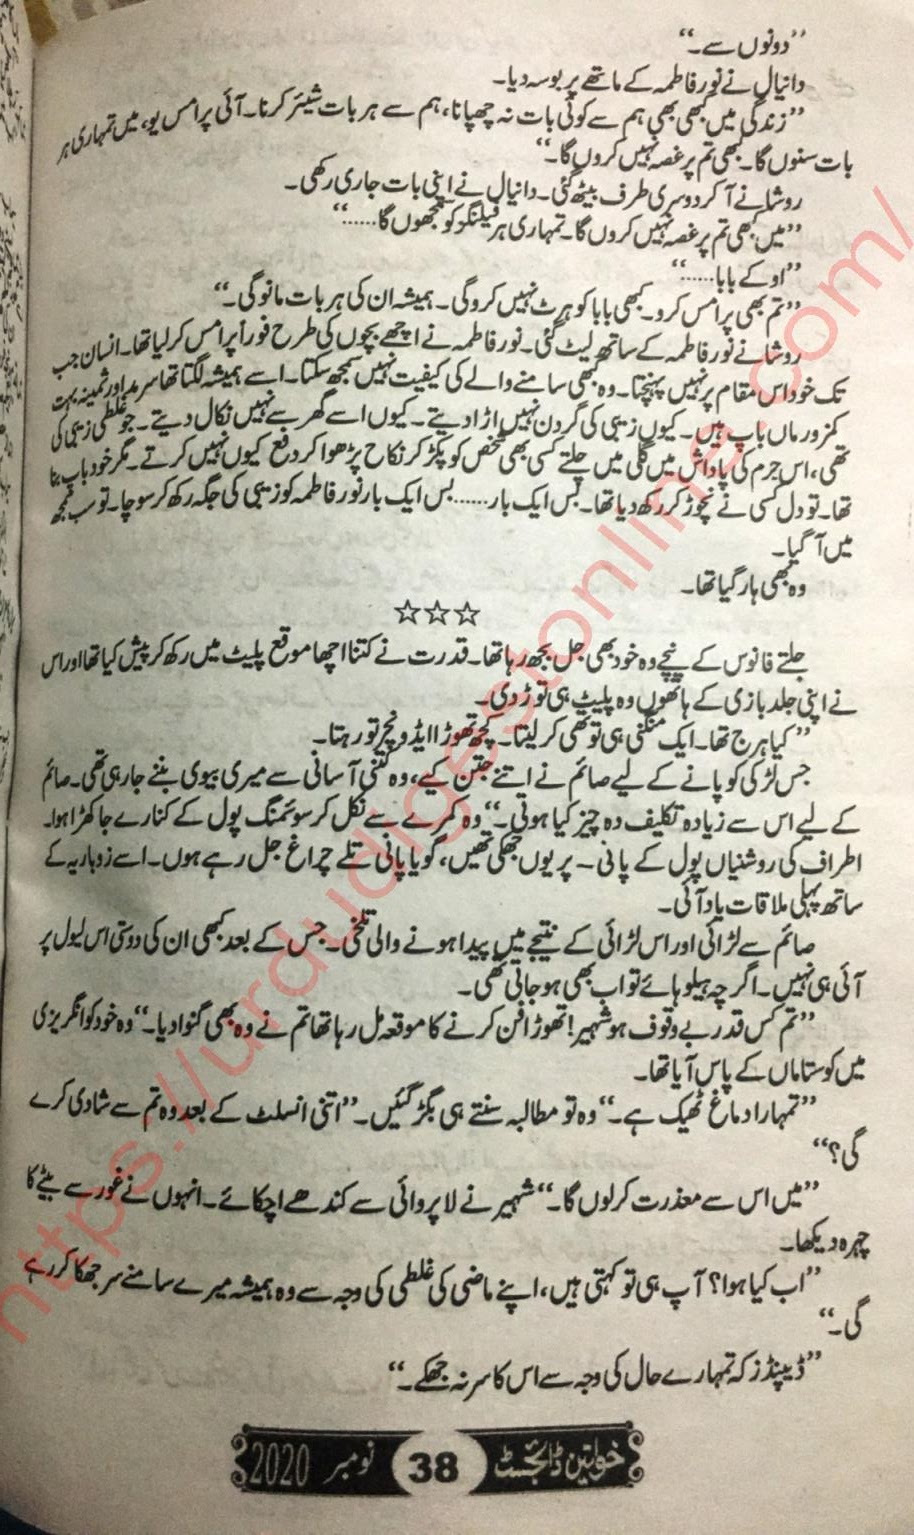 ’’دونوں سے۔‘‘
دانیال نے نور فاطمہ کے ماتھے پر بوسہ دیا۔
’’زندگی میں کبھی بھی ہم سے کوئی بات نہ چھپانا، ہم سے ہر بات شیئر کرنا۔ آئی پرامس یو، میں تمہاری ہر
بات سنوں گا۔ کبھی تم پر غصہ نہیں کروں گا۔‘‘
روشانے آ کر دوسری طرف بیٹھ گئی۔ دانیال نے اپنی بات جاری رکھی۔
’’میں کبھی تم پر غصہ نہیں کروں گا۔ تمہاری ہر فیلنگ کو سمجھوں گا......‘‘
’’اوکے بابا......‘‘
’’تم بھی پرامس کرو۔ کبھی بابا کو ہرٹ نہیں کرو گی۔ ہمیشہ ان کی ہر بات مانو گی۔‘‘
روشانے نور فاطمہ کے ساتھ لیٹ گئی۔ نور فاطمہ نے اچھے بچوں کی طرح فوراً پرامس کر لیا تھا۔ انسان جب
تک خود اس مقام پر نہیں پہنچتا۔ وہ کبھی سامنے والے کی کیفیت نہیں سمجھ سکتا۔ اسے ہمیشہ لگتا تھا سرمد اور ثمینہ بہت
کمزور ماں باپ ہیں۔ کیوں زیبی کی گردن نہیں اڑا دیتے۔ کیوں اسے گھر سے نہیں نکال دیتے۔ جو غلطی زیبی کی
تھی، اس جرم کی پاداش میں گلی میں چلتے کسی بھی شخص کو پکڑ کر نکاح پڑھوا کر دفع کیوں نہیں کرتے۔ مگر خود باپ بنا
تھا۔ تو دل کسی نے نچوڑ کر رکھ دیا تھا۔ بس ایک بار...... بس ایک بار نور فاطمہ کو زیبی کی جگہ رکھ کر سوچا۔ تو سب سمجھ
میں آ گیا۔
وہ بھی ہار گیا تھا۔
☆☆☆
جلتے فانوس کے نیچے وہ خود بھی جل بجھ رہا تھا۔ قدرت نے کتنا اچھا موقع پلیٹ میں رکھ کر پیش کیا تھا اور اس
نے اپنی جلد بازی کے ہاتھوں وہ پلیٹ ہی توڑ دی۔
’’کیا ہرج تھا۔ ایک منگنی ہی تو تھی کر لیتا۔ کچھ تھوڑا ایڈونچر تو رہتا۔
جس لڑکی کو پانے کے لیے صائم نے اتنے جتن کیے، وہ کتنی آسانی سے میری بیوی بننے جا رہی تھی۔ صائم
کے لیے اس سے زیادہ تکلیف دہ چیز کیا ہوتی۔‘‘ وہ کمرے سے نکل کر سوئمنگ پول کے کنارے جا کھڑا ہوا۔
اطراف کی روشنیاں پول کے پانی ۔ پر یوں جھکی تھیں، گویا پانی تلے چراغ جل رہے ہوں۔ اسے زوباریہ کے
ساتھ پہلی ملاقات یاد آئی۔
صائم سے لڑائی اور اس لڑائی کے نتیجے میں پیدا ہونے والی تلخی۔ جس کے بعد کبھی ان کی دوستی اس لیول پر
آئی ہی نہیں۔ اگرچہ ہیلو ہائے تو اب بھی ہو جاتی تھی۔
’’تم کس قدر بے وقوف ہو شہیر! تھوڑا فن کرنے کا موقعہ مل رہا تھا تم نے وہ بھی گنوا دیا۔‘‘ وہ خود کو انگریزی
میں کوستا ماں کے پاس آیا تھا۔
’’تمہارا دماغ ٹھیک ہے۔‘‘ وہ تو مطالبہ سنتے ہی بگڑ گئیں۔ ’’اتنی انسلٹ کے بعد وہ تم سے شادی کرے
گی؟‘‘
’’میں اس سے معذرت کر لوں گا۔‘‘ شہیر نے لاپروائی سے کندھے اچکائے۔ انہوں نے غور سے بیٹے کا
چہرہ دیکھا۔
’’اب کیا ہوا؟ آپ ہی تو کہتی ہیں، اپنے ماضی کی غلطی کی وجہ سے وہ ہمیشہ میرے سامنے سر جھکا کر رہے
گی۔‘‘
’’ڈیپنڈز کہ تمہارے حال کی وجہ سے اس کا سر نہ جھکے۔‘‘
خواتین ڈائجسٹ 38 نومبر 2020
https://urdudigestonline.com/